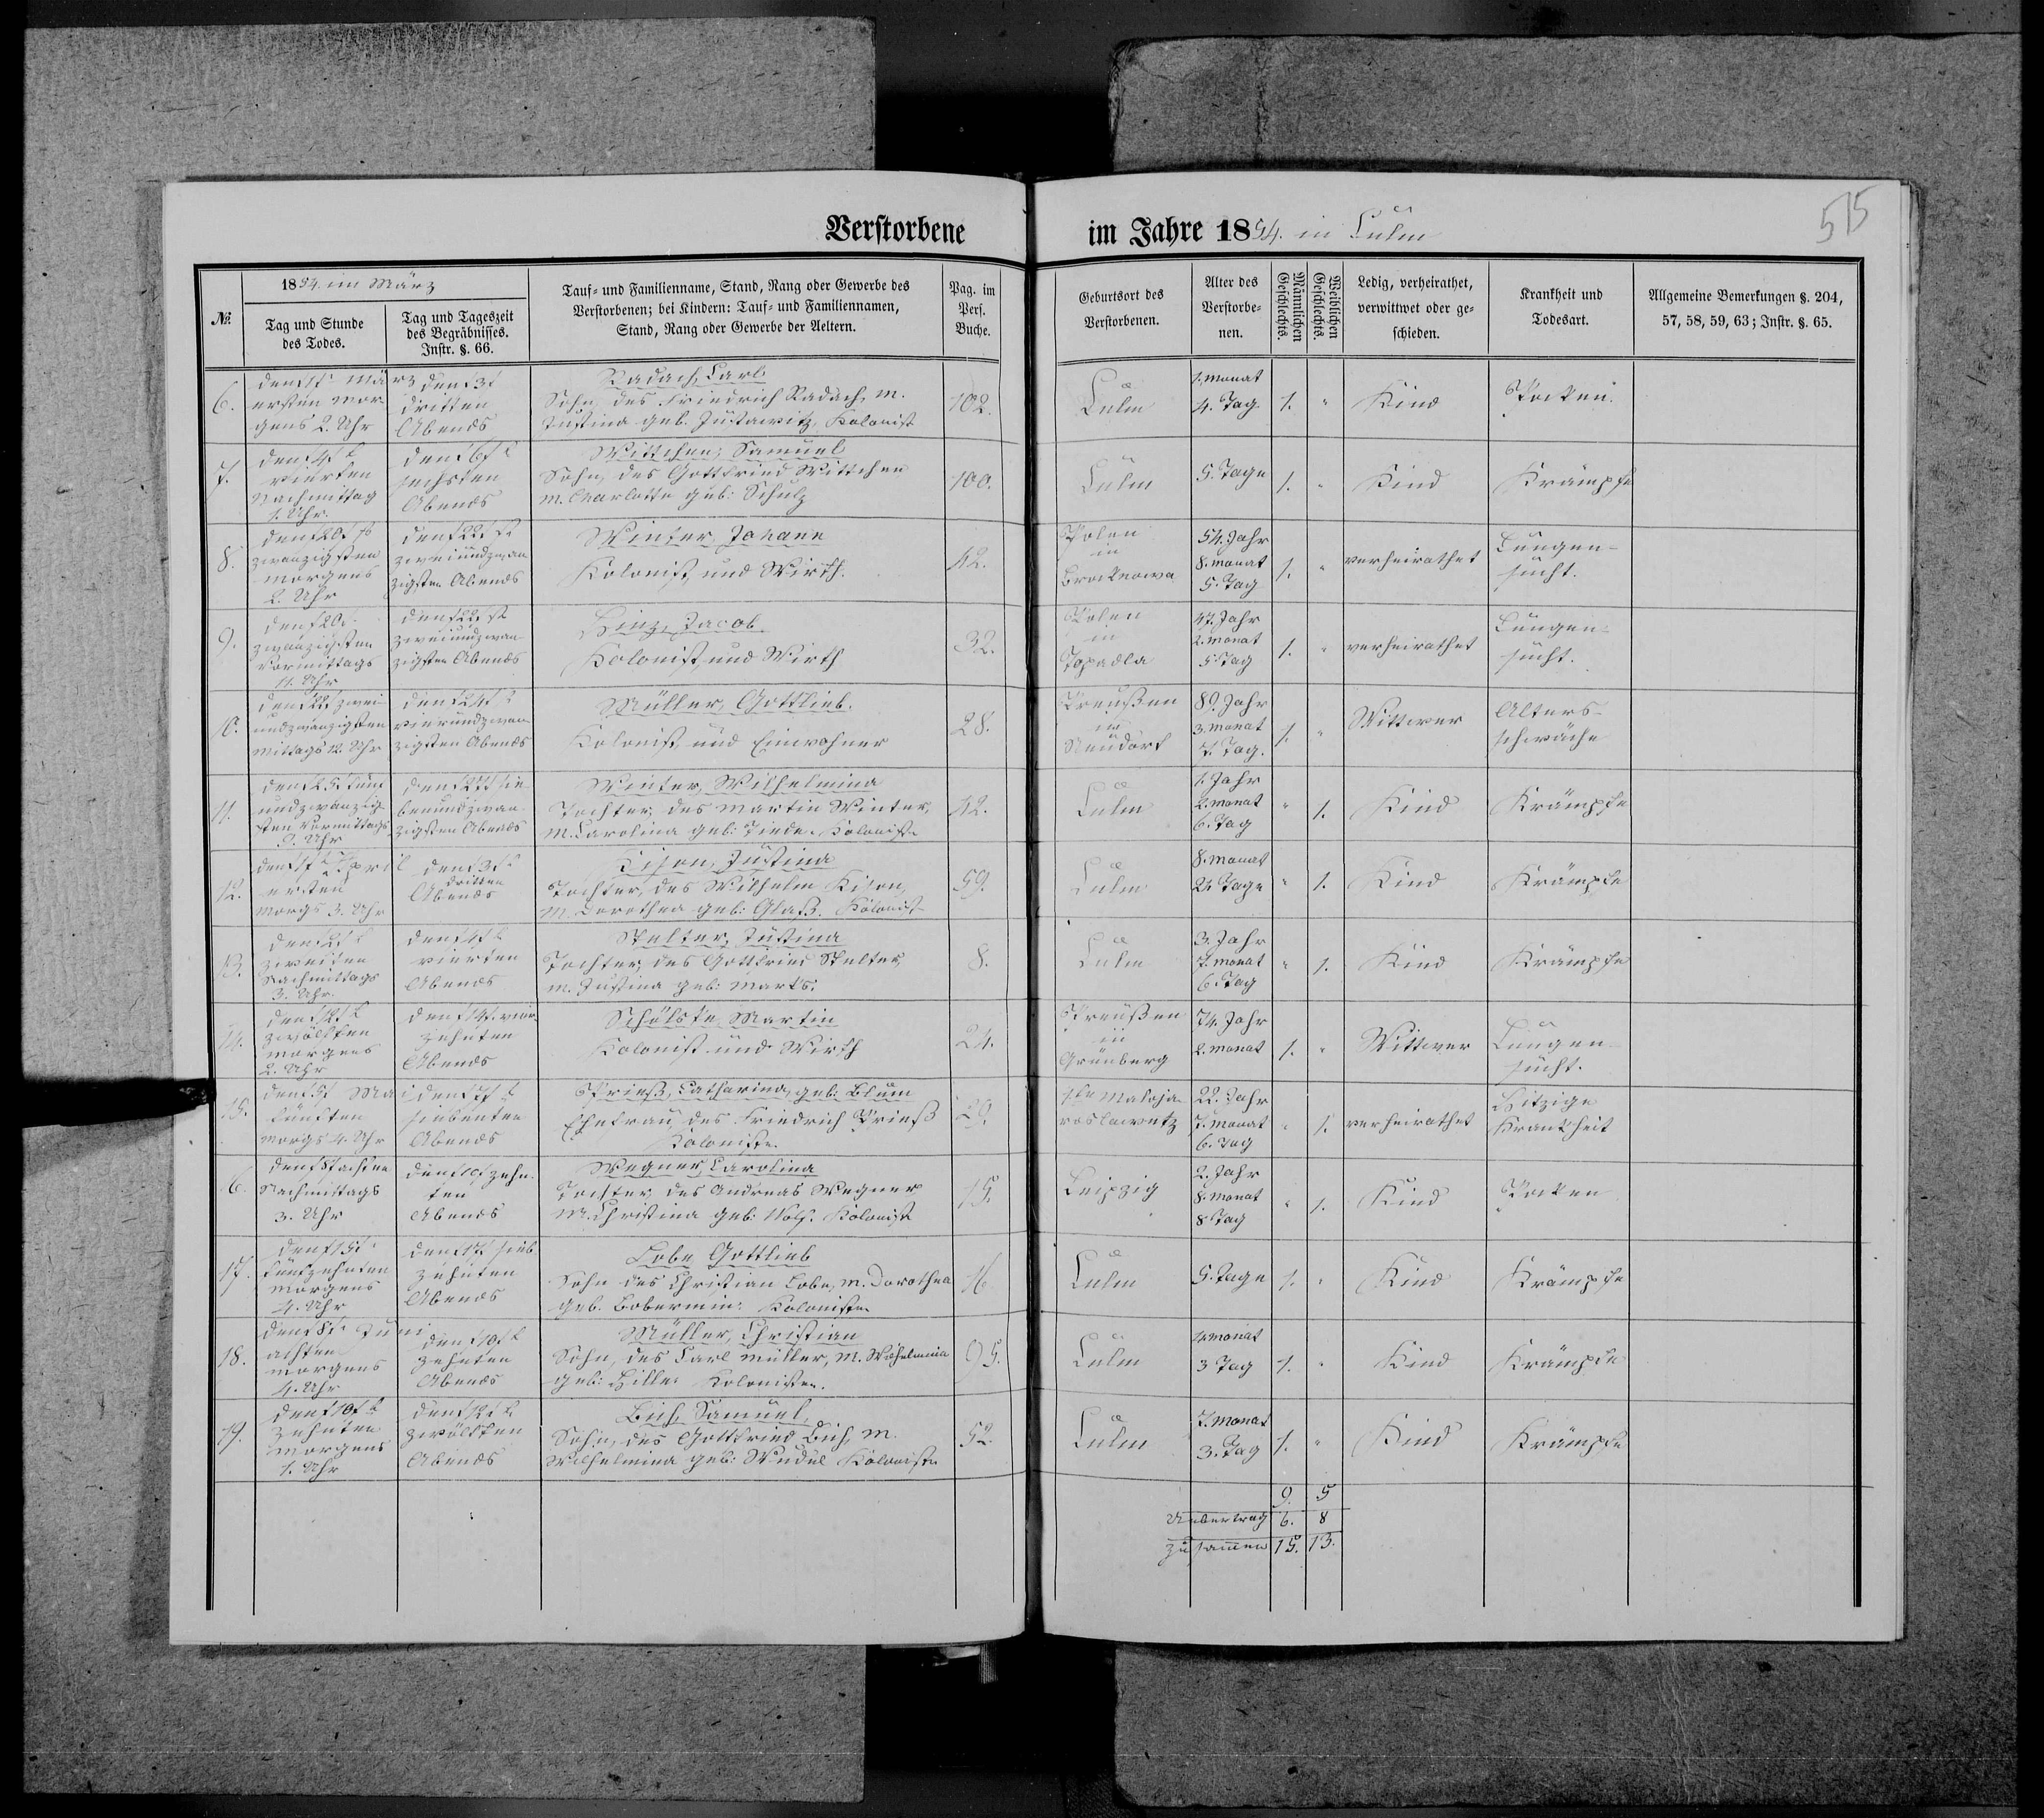 Verstorbene im Jahre 1854. in Culm
515
1854. im März
№.
Tag und Stunde des Todes.
Tag und Tageszeit des Begräbnisses. Instr. §. 66.
Tauf- und Familienname, Stand, Rang oder Gewerbe des Verstorbenen; bei Kindern: Tauf- und Familiennamen, Stand, Rang oder Gewerbe der Aeltern.
Pag. im Pers. Buche.
Geburtsort des Verstorbenen.
Alter des Verstorbenen.
Männlichen Geschlechts.
Weiblichen Geschlechts.
Ledig, verheirathet, verwittwet oder geschieden.
Krankheit und Todesart.
Allgemeine Bemerkungen §. 204, 57, 58, 59, 63; Instr. §. 65.
6. den 1t März ersten Morgens 2. Uhr
den 3t dritten Abends
Radach, Carl
Sohn, des Friedrich Radach, m.
Justina geb. Justawitz, Kolonist
102. Culm 1. monat 4. Tag 1. " Kind Pocken.
7. den 4t vierten Nachmittag 1. Uhr.
den 6t sechsten Abends
Wittchen, Samuel
Sohn, des Gottfried Wittchen
m. Charlotte geb: Schulz
100. Culm 5. Tage 1. " Kind Krämpfe
8. den 20t zwanzigsten morgens 2. Uhr
den 22t zweiundzwanzigsten Abends
Winter, Johann
Kolonist und Wirth.
42. Polen in Brocknowa 54. Jahr 8. monat 5. Tag 1. " verheirathet Lungensucht.
9. den 20t zwanzigsten Vormittags 11. Uhr
den 22t zweiundzwanzigsten Abends
Hinz, Jacob
Kolonist und Wirth
32. Polen in Topadla 47. Jahr 2. monat 5 Tag 1. " verheirathet Lungensucht.
10. den 22t zweiundzwanzigsten Mittags 12. Uhr
den 24t vierundzwanzigsten Abends
Müller, Gottlieb.
Kolonist und Einwohner
28. Preußen in Neudorf 89. Jahr 3. monat 7. Tag. 1. " Wittwer Altersschwäche
11. den 25t fünfundzwanzigsten Vormittags 9. Uhr
den 27t siebenundzwanzigsten Abends
Winter, Wilhelmina
Tochter, des Martin Winter,
M. Carolina geb: Tiede. Kolonist
42. Culm 1. Jahr 2. monat 6. Tag " 1. Kind Krämpfe
12. den 1t April ersten Morgs 3. Uhr
den 3t dritten Abends
Kison, Justina
Tochter, des Wilhelm Kison,
M. Dorothea geb: Glaß. Kolonist
59. Culm 8. monat 21 Tage " 1. Kind Krämpfe
13. den 2t zweiten Nachmittags 3. Uhr.
den 4t vierten Abends
Stelter, Justina
Tochter, des Gottfried Stelter,
m. Justina geb: Marks.
8. Culm 3. Jahr 7. monat 6. Tag " 1. Kind Krämpfe
14. den 12t zwölften morgens 2. Uhr
den 14t. vierzehnten Abends
Schölske, Martin
Kolonist und Wirth
24. Preußen in Grünberg 74. Jahr 2. monat 1. " Wittwer Lungensucht.
15. den 5t Mai fünften Morgs 4. Uhr
den 7t siebenten Abends
Prieß, Catharina, geb: Blum
Ehefrau, des Friedrich Prieß
Koloniste.
29. 22. Jahr 7. monat 6. Tag " 1. verheirathet Hitzige Krankheit
6. den 8t achten Nachmittags 3. Uhr
den 10t zehnten Abends
Wegner, Carolina
Tochter, des Andreas Wegner
M. Christina geb: Wolf. Koloniste
15. Leipzig 2. Jahr 8. monat 8 Tag " 1. Kind Pocken
17. den 15t fünfzehnten morgens 4. Uhr
den 17t siebzehnten Abends
Lobe, Gottlieb
Sohn des Christian Lobe, m. Dorothea
geb. Bobermin. Kolonisten
16 Culm 5. Tage 1. " Kind Krämpfe
18. den 8t Juni achten morgens 4. Uhr
den 10t zehnten Abends
Müller, Christian
Sohn, des Carl Müller, M. Wilhelmina
geb: Hiller Kolonisten.
95. Culm 4. monat 3 Tag 1. " Kind Krämpfe
19. den 10t zehnten morgens 1. Uhr
den 12t zwölften Abends
Bich, Samuel,
Sohn, des Gottfried Bich, M.
Wilhelmina geb: Wudel Koloniste
52. Culm 7. monat 3. Tag 1. " Kind Krämpfe
9. 5
Uebertrag 6. 8
zusammen 15. 13.